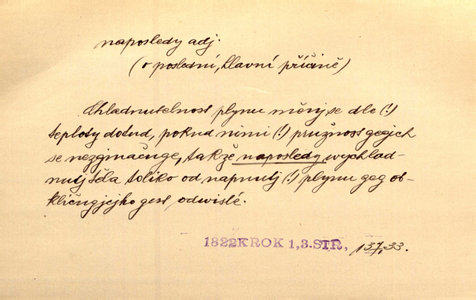 naposledy adj.
(v poslední, hlavní příčině)
Chladnutelnost plynu měnj se dle (!)
teploty dotud, pokud njmi (!) pružnost gegich
se nezginačuge, takže naposledy wychlad-
nutj těla toliko od napnutj (!) plynu geg ob-
kličugjcjho gest, odwislé.
1822 KROK 1,3. STR, 137, 33.